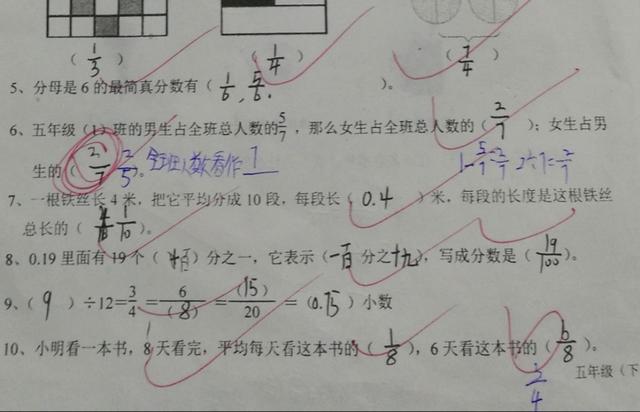 ( 1/3 ) ( 1/4 ) ( 7/4 )
5、分母是6的最简真分数有( 1/6 , 5/6. )。
6、五年级(1)班的男生占全班总人数的5/7,那么女生占全班总人数的( 2/7 );女生占男
生的( 2/7 2/5 )。全班人数看作1 1-5/7=2/7 2÷7=2/7
7、一根铁丝长4米,把它平均分成10段,每段长( 0.4 )米,每段的长度是这根铁丝
总长的( 1/10 )。
8、0.19里面有19个( 一百 )分之一,它表示(一百分之十九),写成分数是( 19/100 )。
9、( 9 )÷12=3/4=6/(8)=(15)/20=(0.75)小数
10、小明看一本书,8天看完,平均每天看这本书的( 1/8 ),6天看这本书的( 6/8 )。
3/4
五年级(下